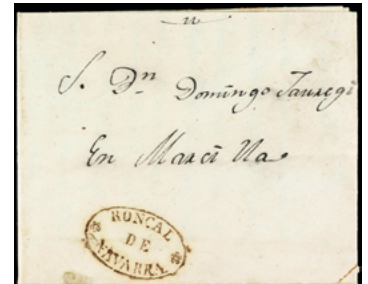 S. Dn Domingo Jauregi
En Marci Na
RONCAL
DE
NAVARRA